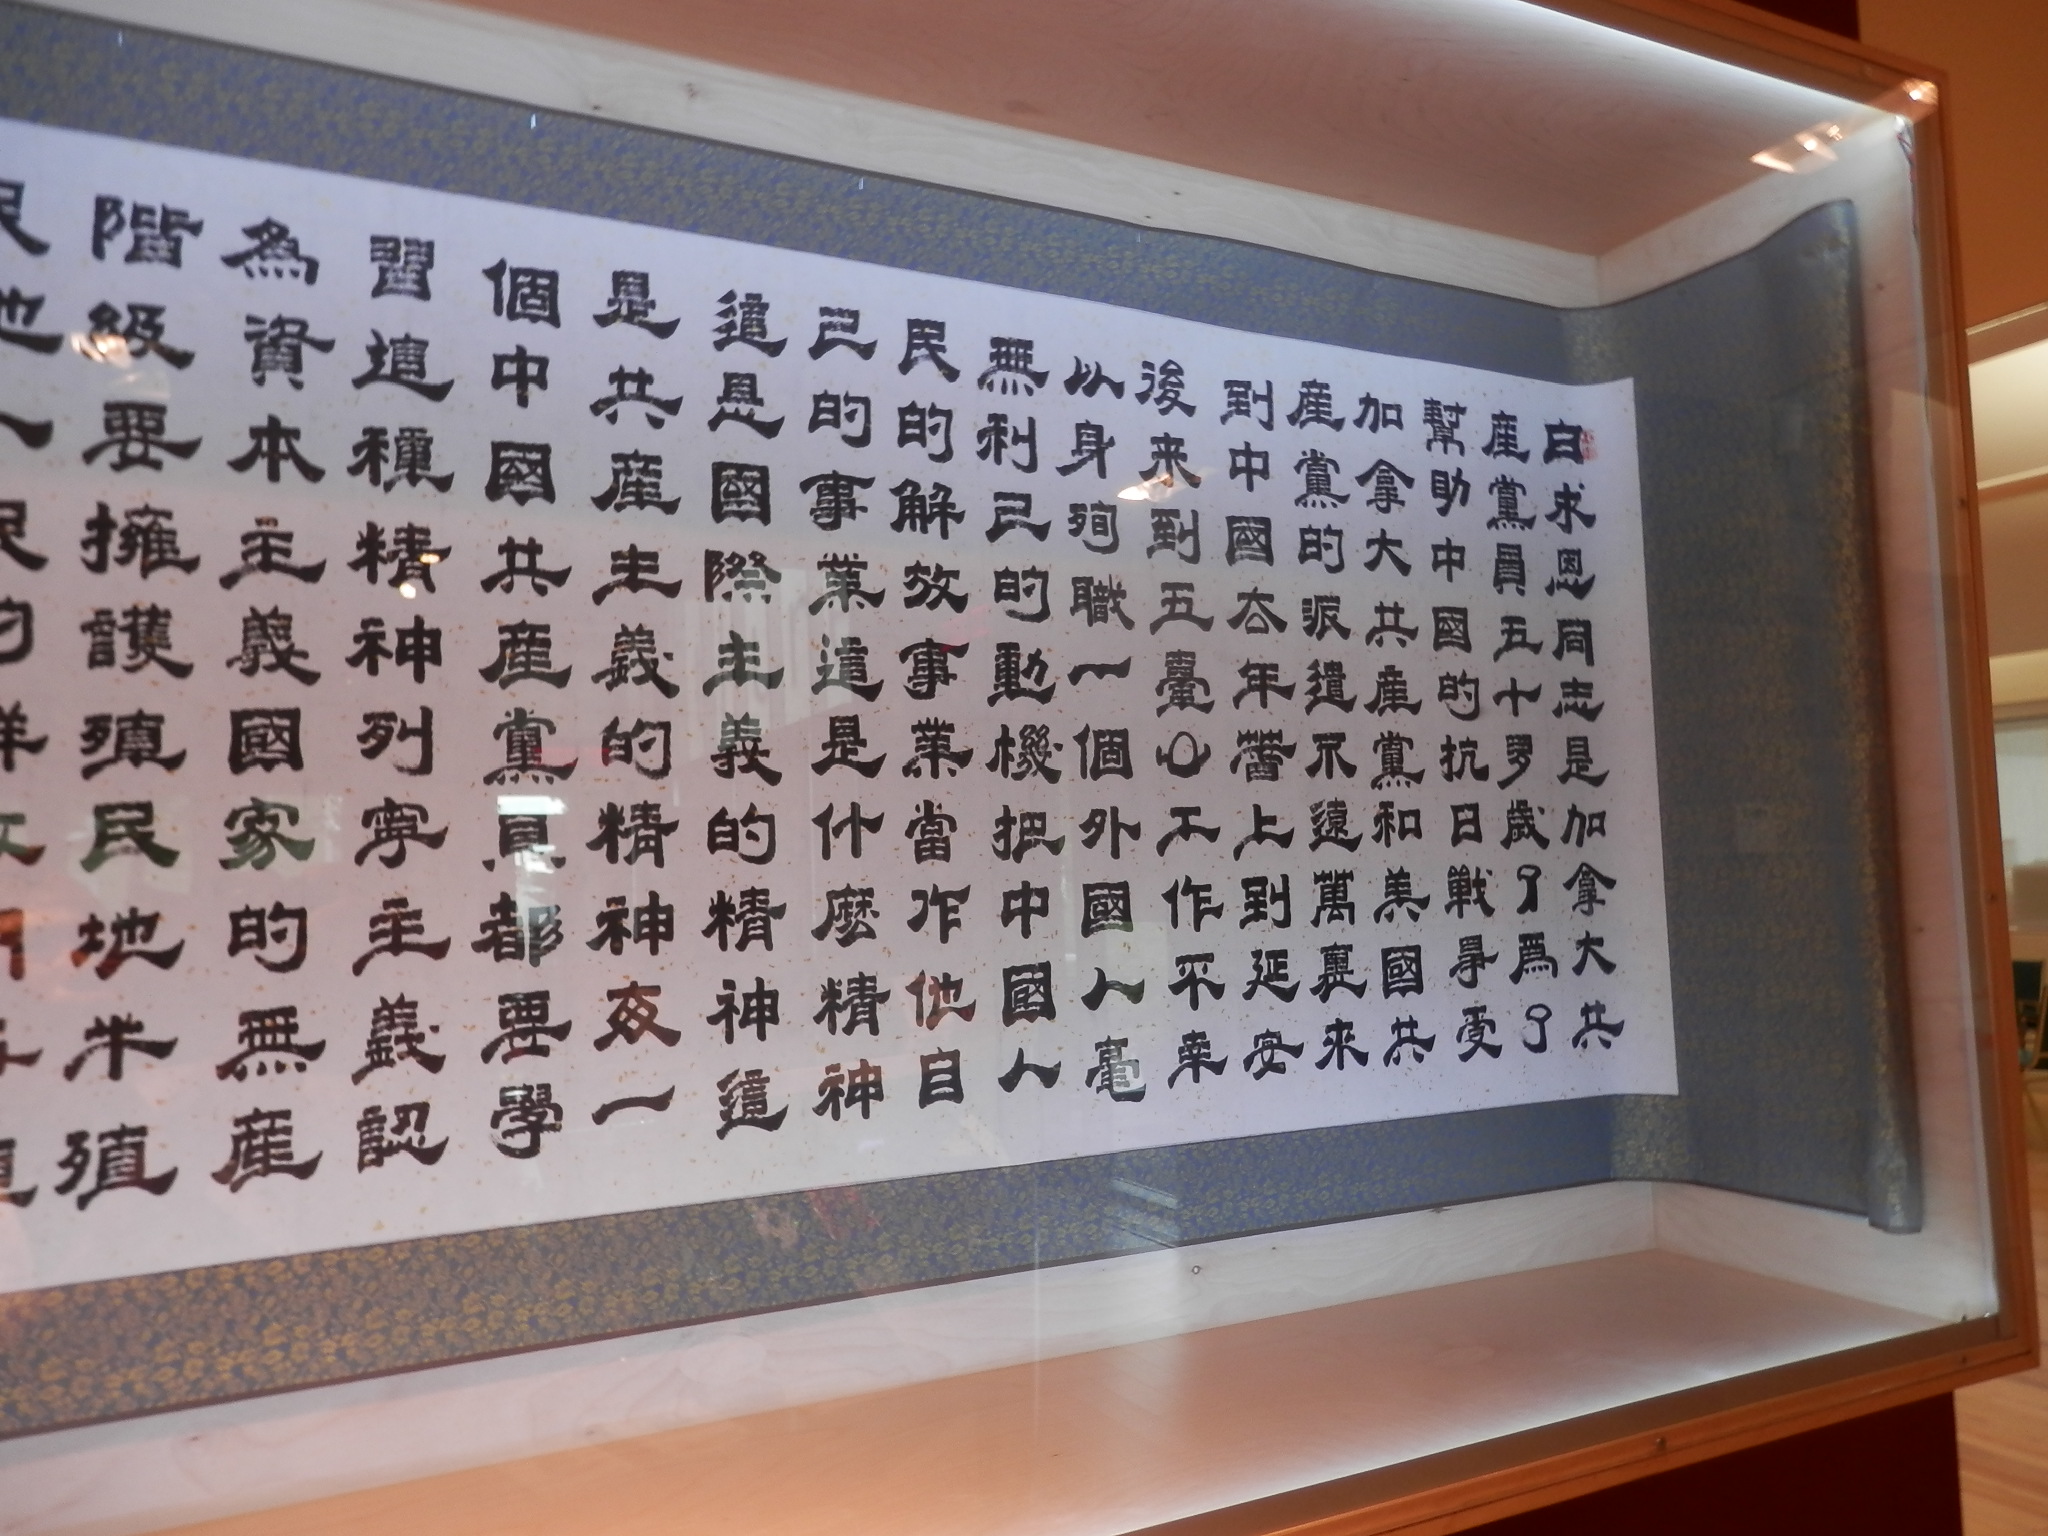 白求恩同志是加拿大共
産黨員五十多歲了爲了
幫助中國的抗日戰爭受
加拿大共産黨和美國共
産黨的派遣不遠萬裏來
到中國去年春上到延安
後来到五臺山工作不幸
以身殉職一個外國人毫
無利己的動機把中國人
民的解放事業當作他自
己的事業這是什麽精神
這是國際主義的精神這
是共産主義的精神每一
個中國共産黨員都要學
習這種精神列寧主義認
為資本主義國家的無産
階級要擁護殖民地半殖